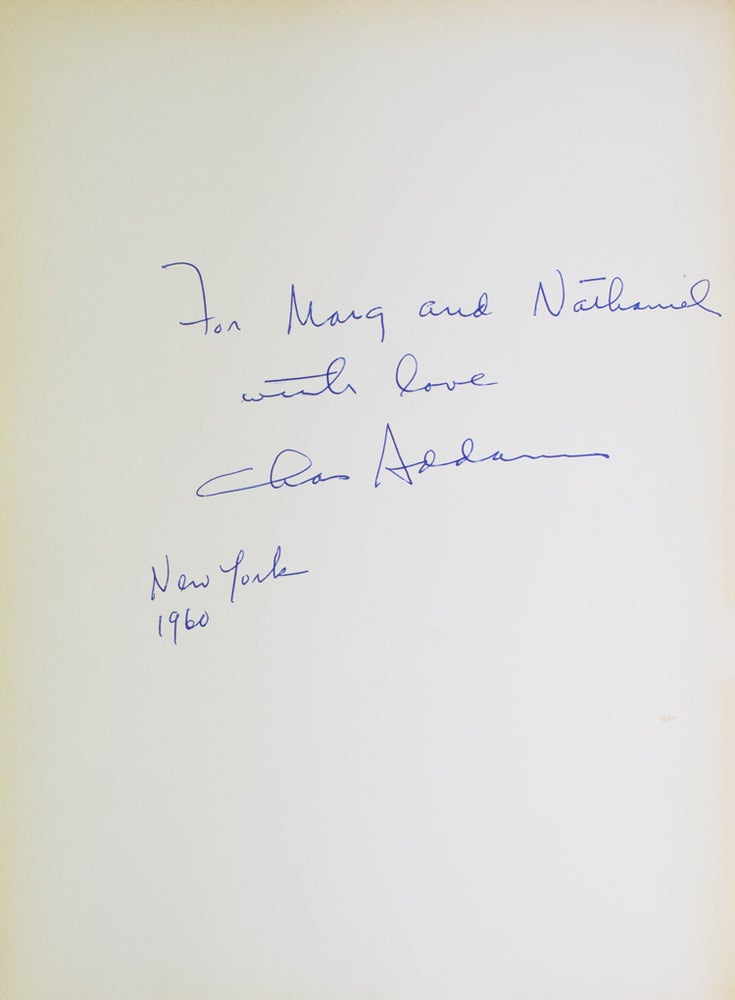 For Marg and Nathaniel
with love
Chas Addams
New York
1960